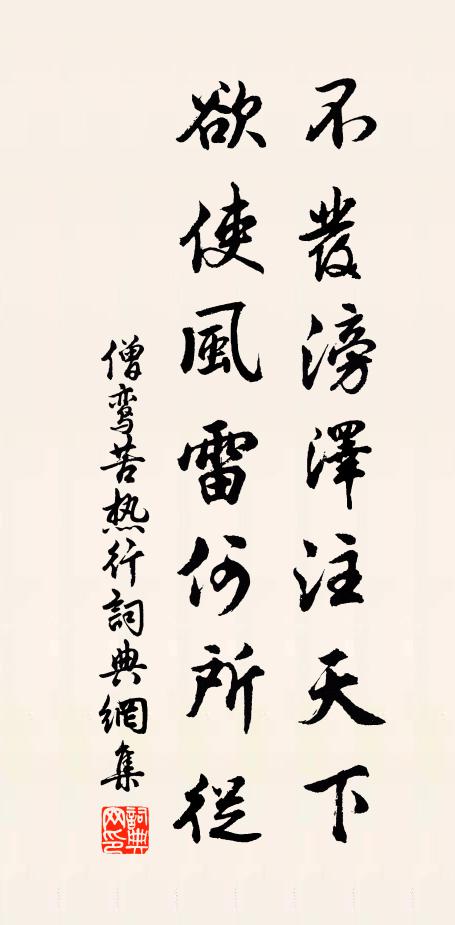 不發滂澤注天下
欲使風雷何所從
僧鸾苦热行詞典網集
詞典网印